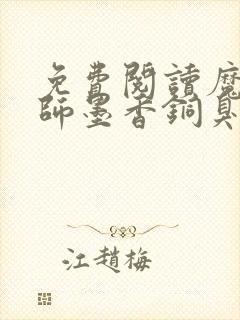 免費閱讀魔
師墨香銅臭
江趙梅